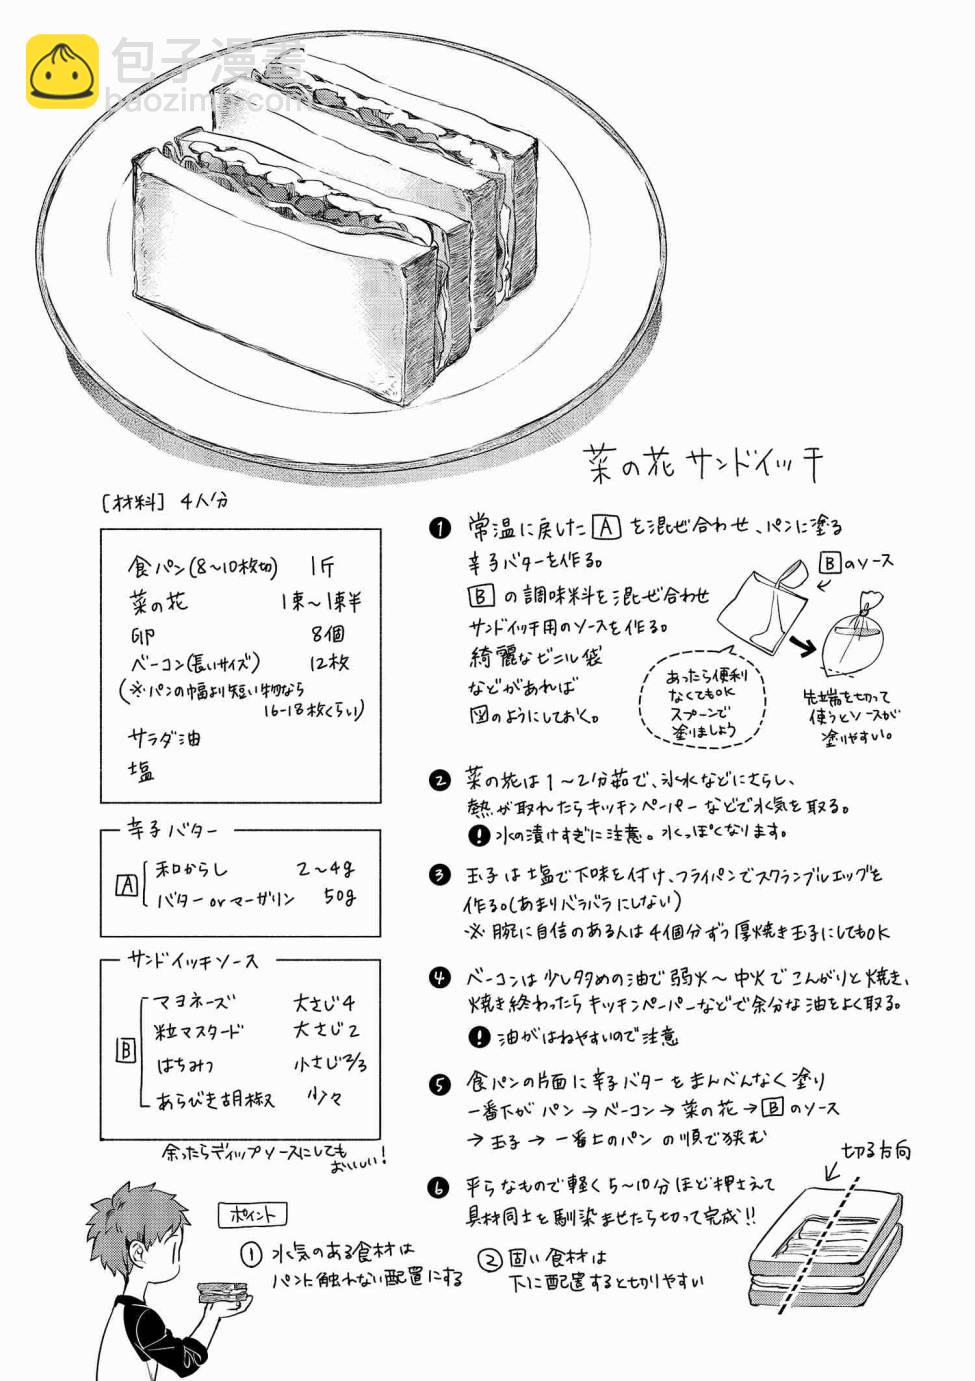 包子漫畫
baozimh.com
菜の花サンドイッチ
[材料] 4人分
食パン(8〜10枚切) 1斤
菜の花 1束〜1束半
卵 8個
ベーコン(長いサイズ) 12枚
(※パンの幅より短い物なら
16-18枚くらい)
サラダ油
塩
辛子バター
A
和からし 2〜4g
バターorマーガリン 50g
サンドイッチソース
B
マヨネーズ 大さじ4
粒マスタード 大さじ2
はちみつ 小さじ2/3
あらびき胡椒 少々
余ったらディップソースにしても
おいしい!
❶ 常温に戻したAを混ぜ合わせ、パンに塗る
辛子バターを作る。
Bの調味料を混ぜ合わせ
サンドイッチ用のソースを作る。
綺麗なビニル袋
などがあれば
図のようにしておく。
Bのソース
あったら便利
なくてもOK
スプーンで
塗りましょう
先端を切って
使うとソースが
塗りやすい。
❷ 菜の花は1〜2分茹で、氷水などにさらし、
熱が取れたらキッチンペーパーなどで水気を取る。
! 水の漬けすぎに注意。水っぽくなります。
❸ 玉子は塩で下味を付け、フライパンでスクランブルエッグを
作る。(あまりバラバラにしない)
※腕に自信のある人は4個分ずつ厚焼き玉子にしてもOK
❹ ベーコンは少し多めの油で弱火〜中火でこんがりと焼き、
焼き終わったらキッチンペーパーなどで余分な油をよく取る。
! 油がはねやすいので注意
❺ 食パンの片面に辛子バターをまんべんなく塗り
一番下がパン→ベーコン→菜の花→Bのソース
→玉子→一番上のパンの順で挟む
❻ 平らなもので軽く5〜10分ほど押さえて
具材同士を馴染ませたら切って完成!!
切る方向
ポイント
① 水気のある食材は
パンに触れない配置にする
② 固い食材は
下に配置すると切りやすい